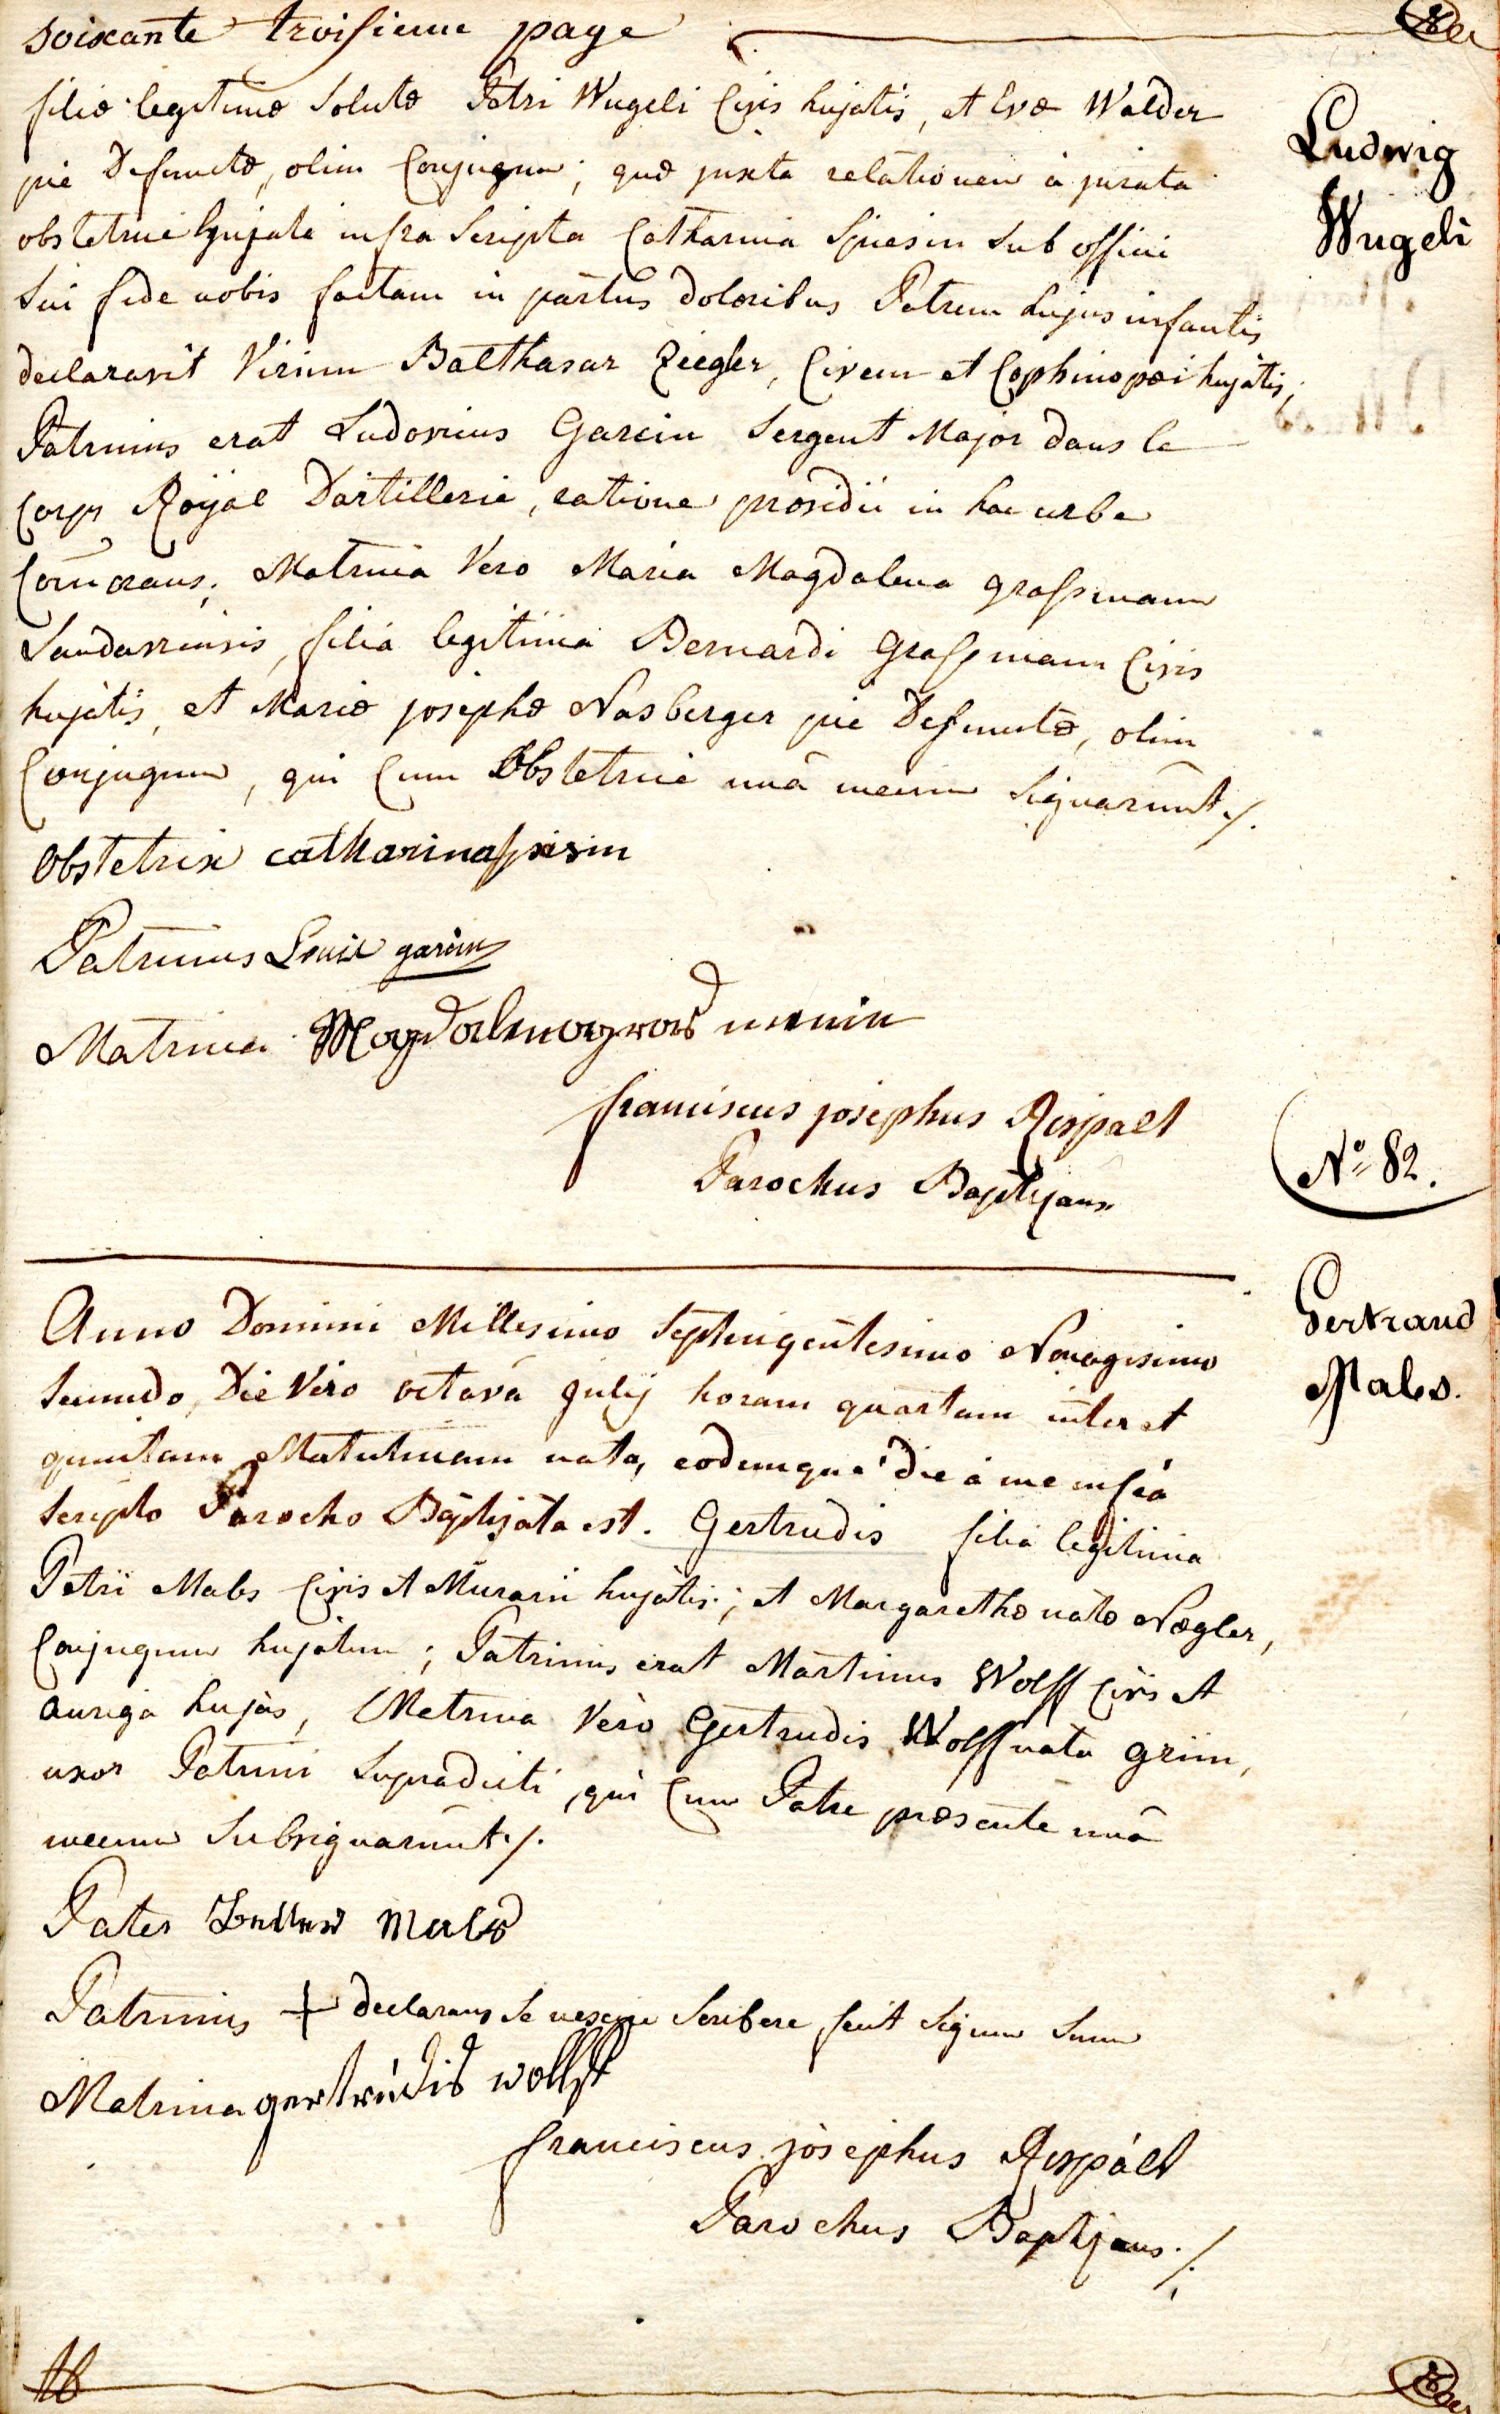 soixante troisieme page
filiæ legitimæ Solutæ Petri Wugeli Civis hujatis, et Evæ Walder
pie Defunctæ, olim Conjugum; quæ juxta relationem à jurata
obstetrice hujate infra Scripta Catharina Spiesin Sub officii
Sui fide nobis factam in partus doloribus Patrem hujus infantis
declaravit Virum Balthasar Ziegler, Civem et Cophinopæi hujatis;
Patrinus erat Ludovicus Garcin Sergent Major dans le
Corps Royal Dartillerie, ratione præsidii in hac urbe
Com̄orans; Matrina Vero Maria Magdalena grassmann
Landaviensis, filia legitima Bernardi Grassmann Civis
hujatis, et Mariæ josephæ Nasberger pie Defunctæ, olim
Conjugum, qui Cum Obstetrice unâ mecum Signarunt ./.
Obstetrix catharina spisin
Patrinus Louis garcin
Matrina Magdalena grasmenin
franciscus josephus Rispalt
Parochus Baptizans
Ludwig
Wugeli
Nº 82.
Gertraud
Mabs.
Anno Domini Millesimo Septingentesimo Nonagesimo
Secundo, Die Vero octavâ Julij horam quartam inter et
quintam Matutinam nata, eodemque die à me infra
Scripto Parocho Baptizata est. Gertrudis filia legitima
Petri Mabs Civis et Murarii hujatis; et Margarethæ natæ Nægler,
Conjugum hujatum; Patrinus erat Martinus Wolff Civis et
auriga hujas, Matrina Vero Gertrudis Wolff nata grim,
uxor Patrini Supradicti, qui Cum Patre præsente unâ
mecum Subsignarunt ./.
Pater Mabs
Patrinus + declarans Se nescire Scribere fecit Signum Suum
Matrina gertrudis wollf
franciscus josephus Rispalt
Parochus Baptizans ./.